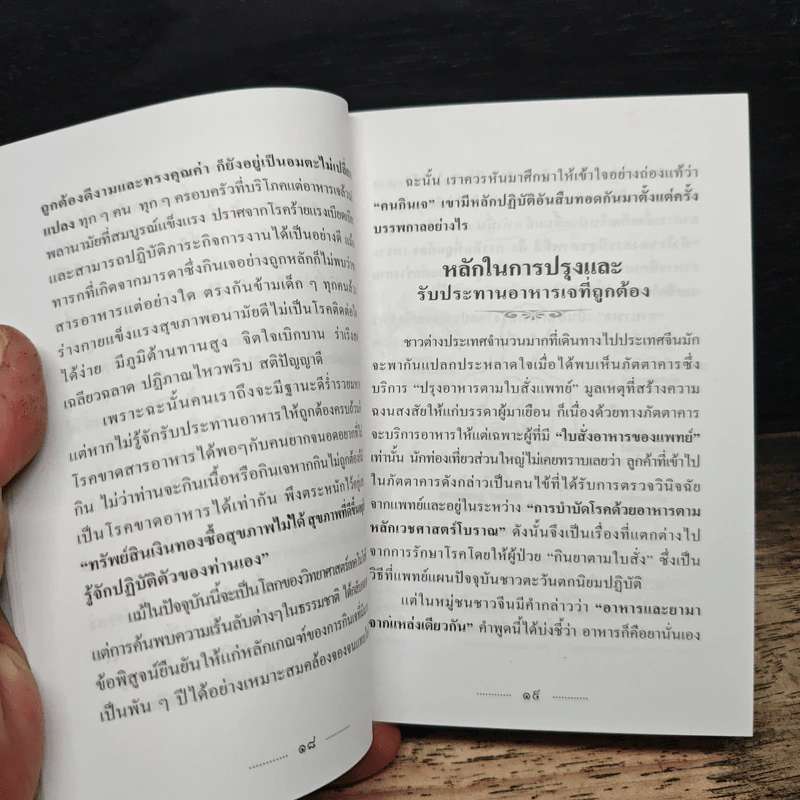 ถูกต้องดีงามและทรงคุณค่า ก็ยังอยู่เป็นอมตะไม่เปลี่ยน
แปลง ทุก ๆ คน ทุก ๆ ครอบครัวที่บริโภคแต่อาหารเจล้วน
พลานามัยที่สมบูรณ์แข็งแรง ปราศจากโรคร้ายแรงเบียดเบียน
และสามารถปฏิบัติภาระกิจการงานได้เป็นอย่างดี
ทารกที่เกิดจากมารดาซึ่งกินเจอย่างถูกหลักก็ไม่พบว่า
สารอาหารแต่อย่างใด ตรงกันข้ามเด็ก ๆ ทุกคน
ร่างกายแข็งแรงสุขภาพอนามัยดีไม่เป็นโรคติดต่อ
ได้ง่าย มีภูมิต้านทานสูง จิตใจเบิกบาน ร่าเริง
เฉลียวฉลาด ปฏิภาณไหวพริบ สติปัญญาดี
เพราะฉะนั้นคนเราถึงจะมีฐานะดีร่ำรวย
แต่หากไม่รู้จักรับประทานอาหารให้ถูกต้องครบถ้วน
โรคขาดสารอาหารได้พอๆกับคนยากจนอดอยาก
กิน ไม่ว่าท่านจะกินเนื้อหรือกินเจหากกินไม่ถูกต้อง
เป็นโรคขาดอาหารได้เท่ากัน พึงตระหนักไว้
“ทรัพย์สินเงินทองซื้อสุขภาพไม่ได้ สุขภาพที่ดีขึ้นอยู่
รู้จักปฏิบัติตัวของท่านเอง”
แม้ในปัจจุบันนี้จะเป็นโลกของวิทยาศาสตร์
แต่การค้นพบความเร้นลับต่างๆในธรรมชาติ
ข้อพิสูจน์ยืนยันให้แก่หลักเกณฑ์ของการกินเจ
เป็นพัน ๆ ปีได้อย่างเหมาะสมคล้องจอง
๑๘
ฉะนั้น เราควรหันมาศึกษาให้เข้าใจอย่างถ่องแท้ว่า
“คนกินเจ” เขามีหลักปฏิบัติอันสืบทอดกันมาตั้งแต่ครั้ง
บรรพกาลอย่างไร
หลักในการปรุงและ
รับประทานอาหารเจที่ถูกต้อง
ชาวต่างประเทศจำนวนมากที่เดินทางไปประเทศจีนมัก
จะพากันแปลกประหลาดใจเมื่อได้พบเห็นภัตตาคารซึ่ง
บริการ “ปรุงอาหารตามใบสั่งแพทย์” มูลเหตุที่สร้างความ
ฉงนสงสัยให้แก่บรรดาผู้มาเยือน ก็เนื่องด้วยทางภัตตาคาร
จะบริการอาหารให้แต่เฉพาะผู้ที่มี “ใบสั่งอาหารของแพทย์”
เท่านั้น นักท่องเที่ยวส่วนใหญ่ไม่เคยทราบเลยว่า ลูกค้าที่เข้าไป
ในภัตตาคารดังกล่าวเป็นคนไข้ที่ได้รับการตรวจวินิจฉัย
จากแพทย์และอยู่ในระหว่าง “การบำบัดโรคด้วยอาหารตาม
หลักเวชศาสตร์โบราณ” ดังนั้นจึงเป็นเรื่องที่แตกต่างไป
จากการรักษาโรคโดยให้ผู้ป่วย “กินยาตามใบสั่ง” ซึ่งเป็น
วิธีที่แพทย์แผนปัจจุบันชาวตะวันตกนิยมปฏิบัติ
แต่ในหมู่ชนชาวจีนมีคำกล่าวว่า “อาหารและยามา
จากแหล่งเดียวกัน” คำพูดนี้ได้บ่งชี้ว่า อาหารก็คือยานั่นเอง
๑๙